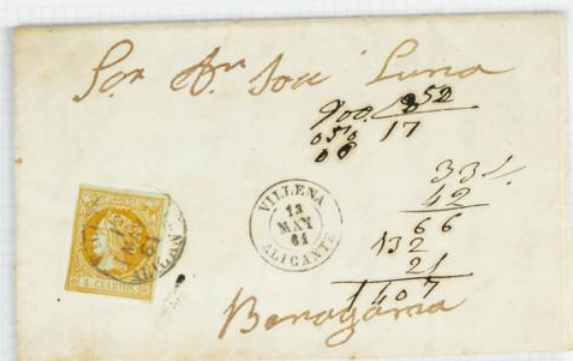 Sor Dn José Luna
900. 52
050 17
00
33
42
66
132
21
1407
VILLENA
13
MAY
61
ALICANTE
4 CUARTOS
Benejama